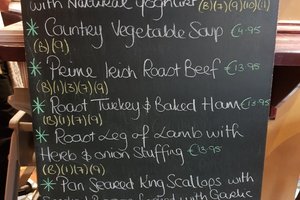 with Natural Yoghurt (B)(7)(9)(10)(1)
* Country Vegetable Soup €4.95
(B)(7)(9)
* Prime Irish Roast Beef €13.95
(B)(1)(3)(7)(9)
* Roast Turkey & Baked Ham €13.95
(B)(1)(7)(9)
* Roast Leg of Lamb with
Herb & onion Stuffing €13.95
(B)(1)(7)(9)
* Pan Seared King Scallops with
with Garlic